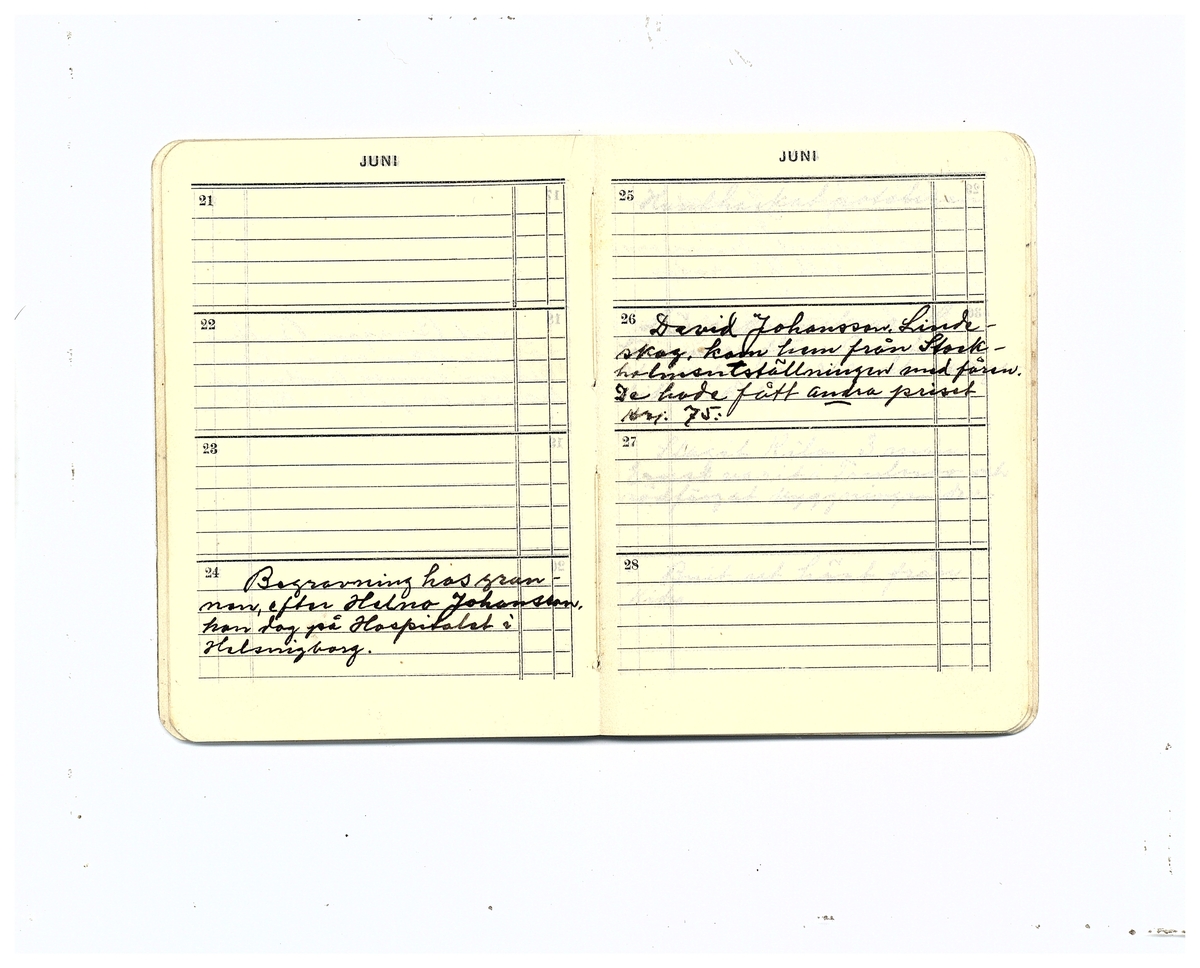 JUNI
21
22
23
24 Begravning hos gran-
nen, efter Helno Johansson,
hon dog på Hospitalet i
Helsingborg.
JUNI
25
26 David Johansson, Linde-
skog, kom hem från Stock-
holmsutställningen med fåren.
De hade fått andra priset
Kr: 75:
27
28